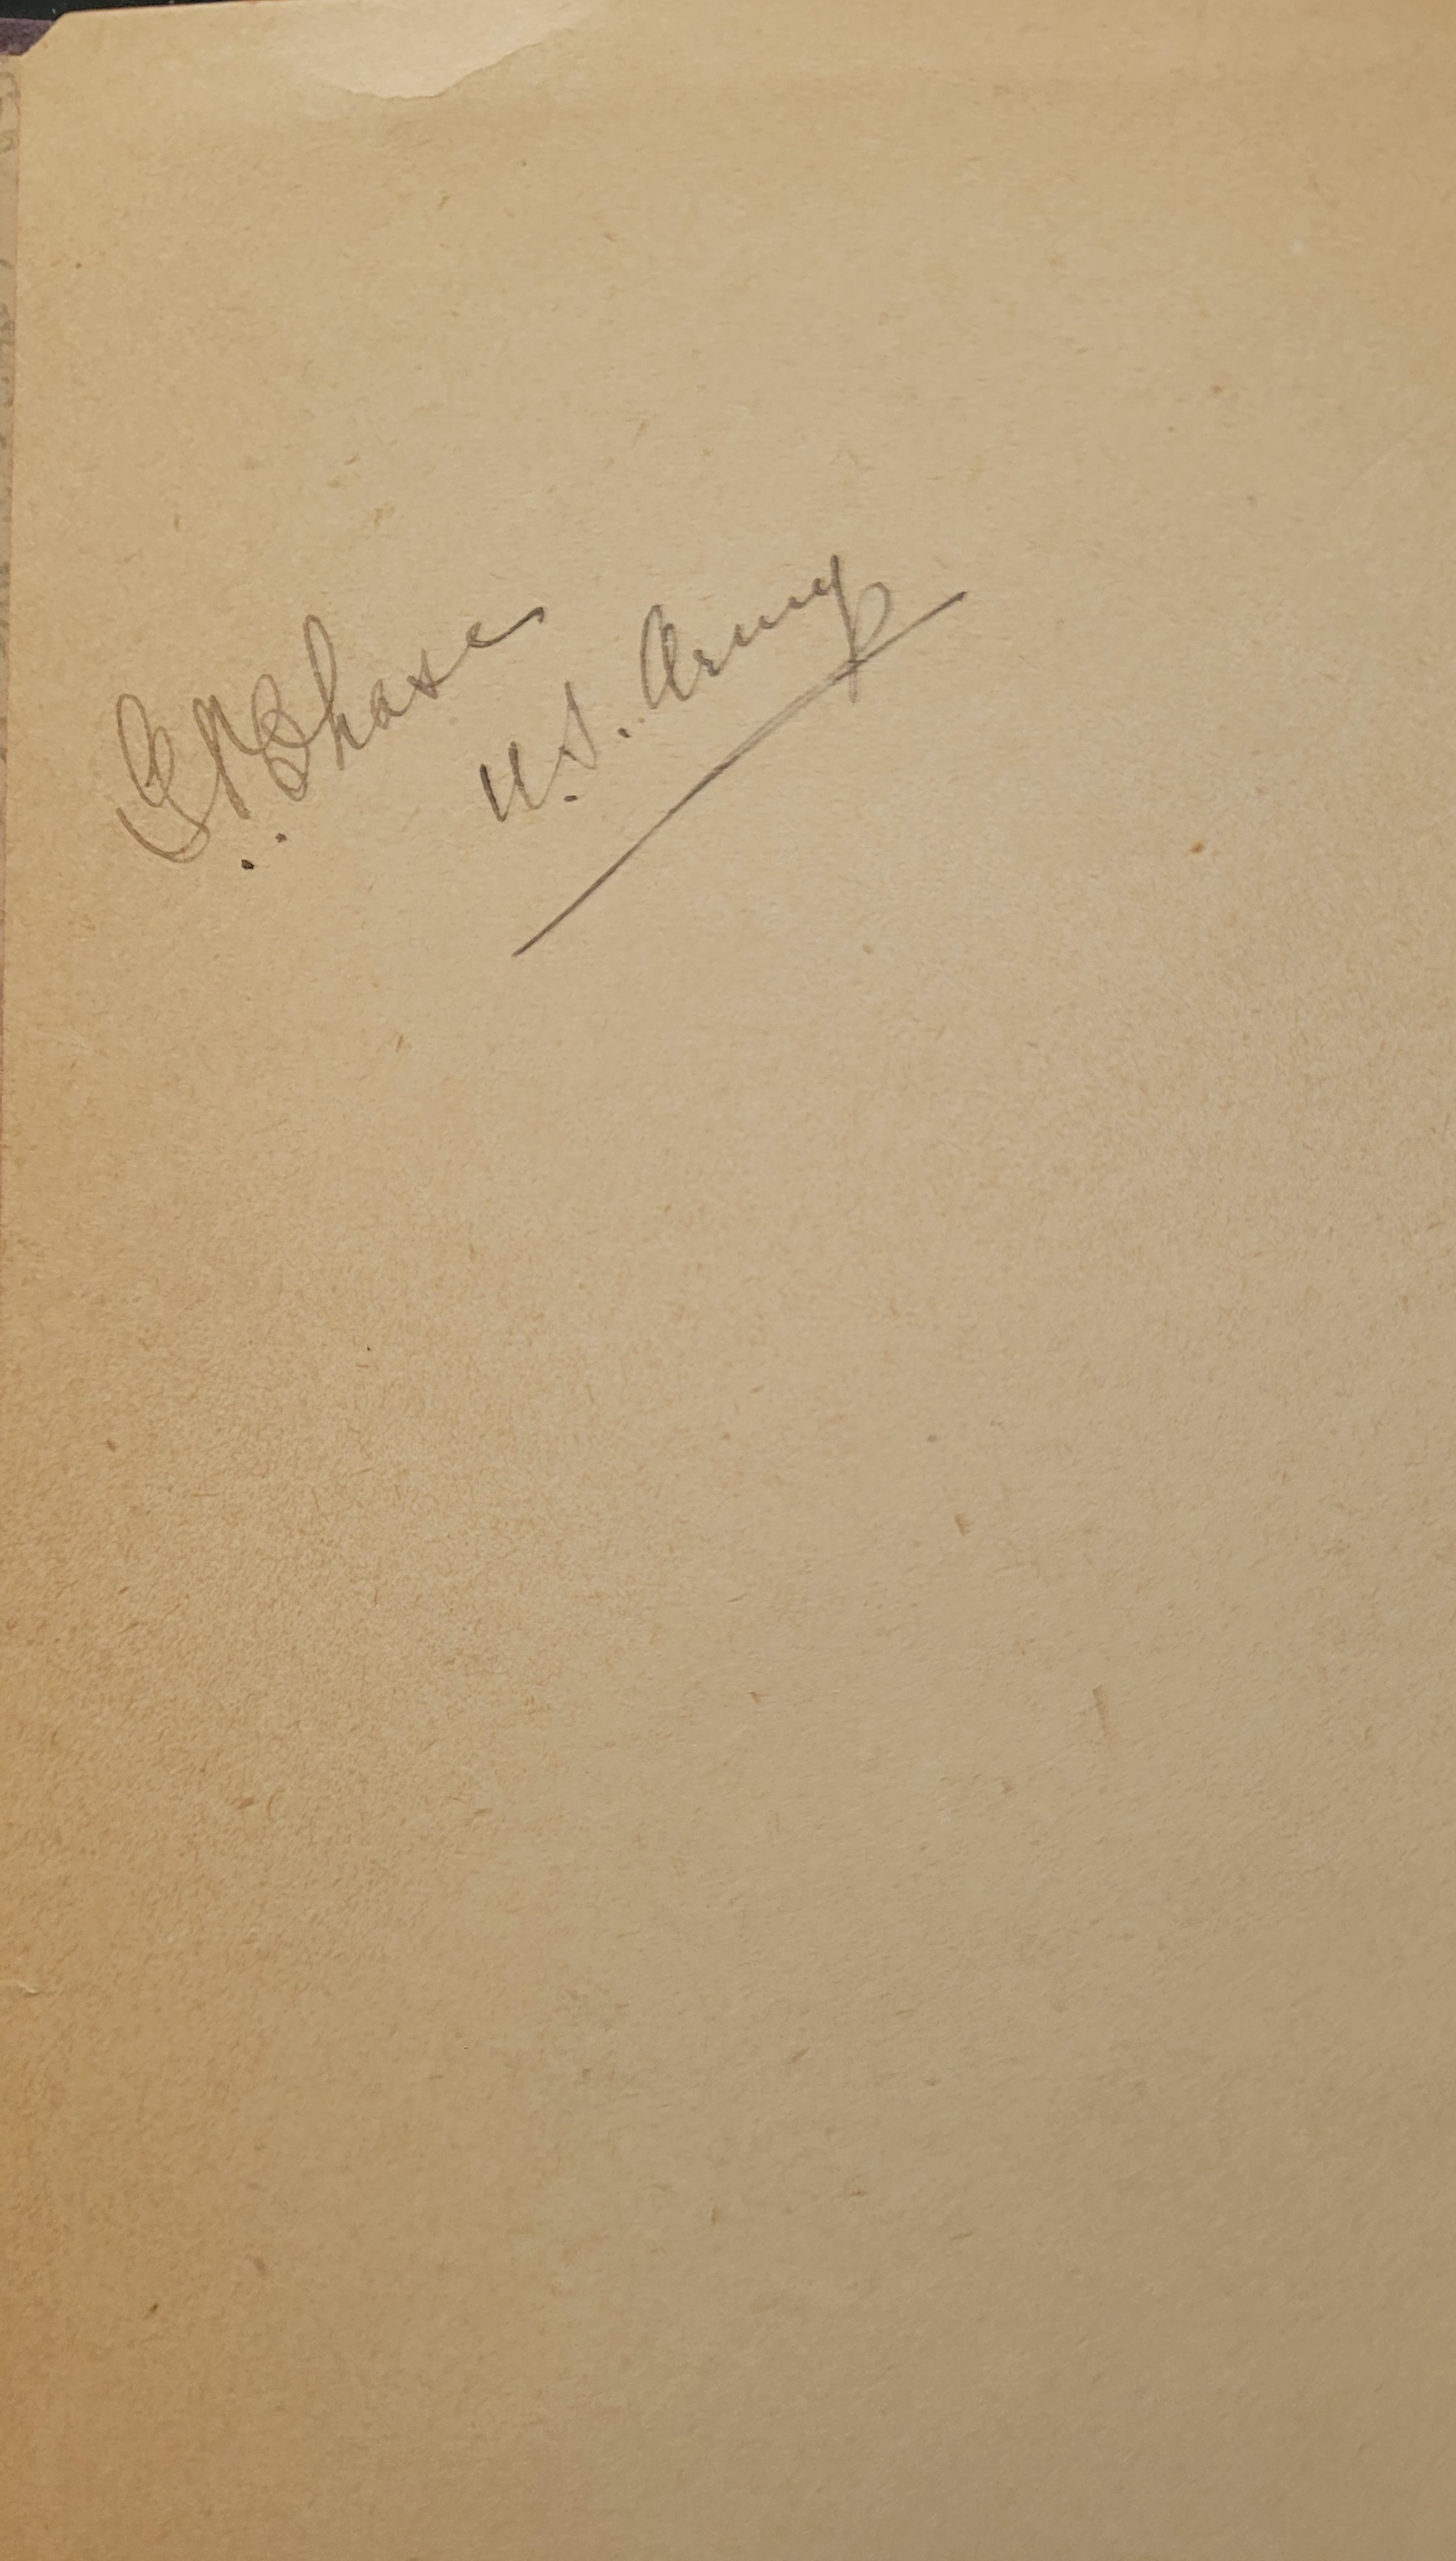 G. N. Chase
U.S. Army